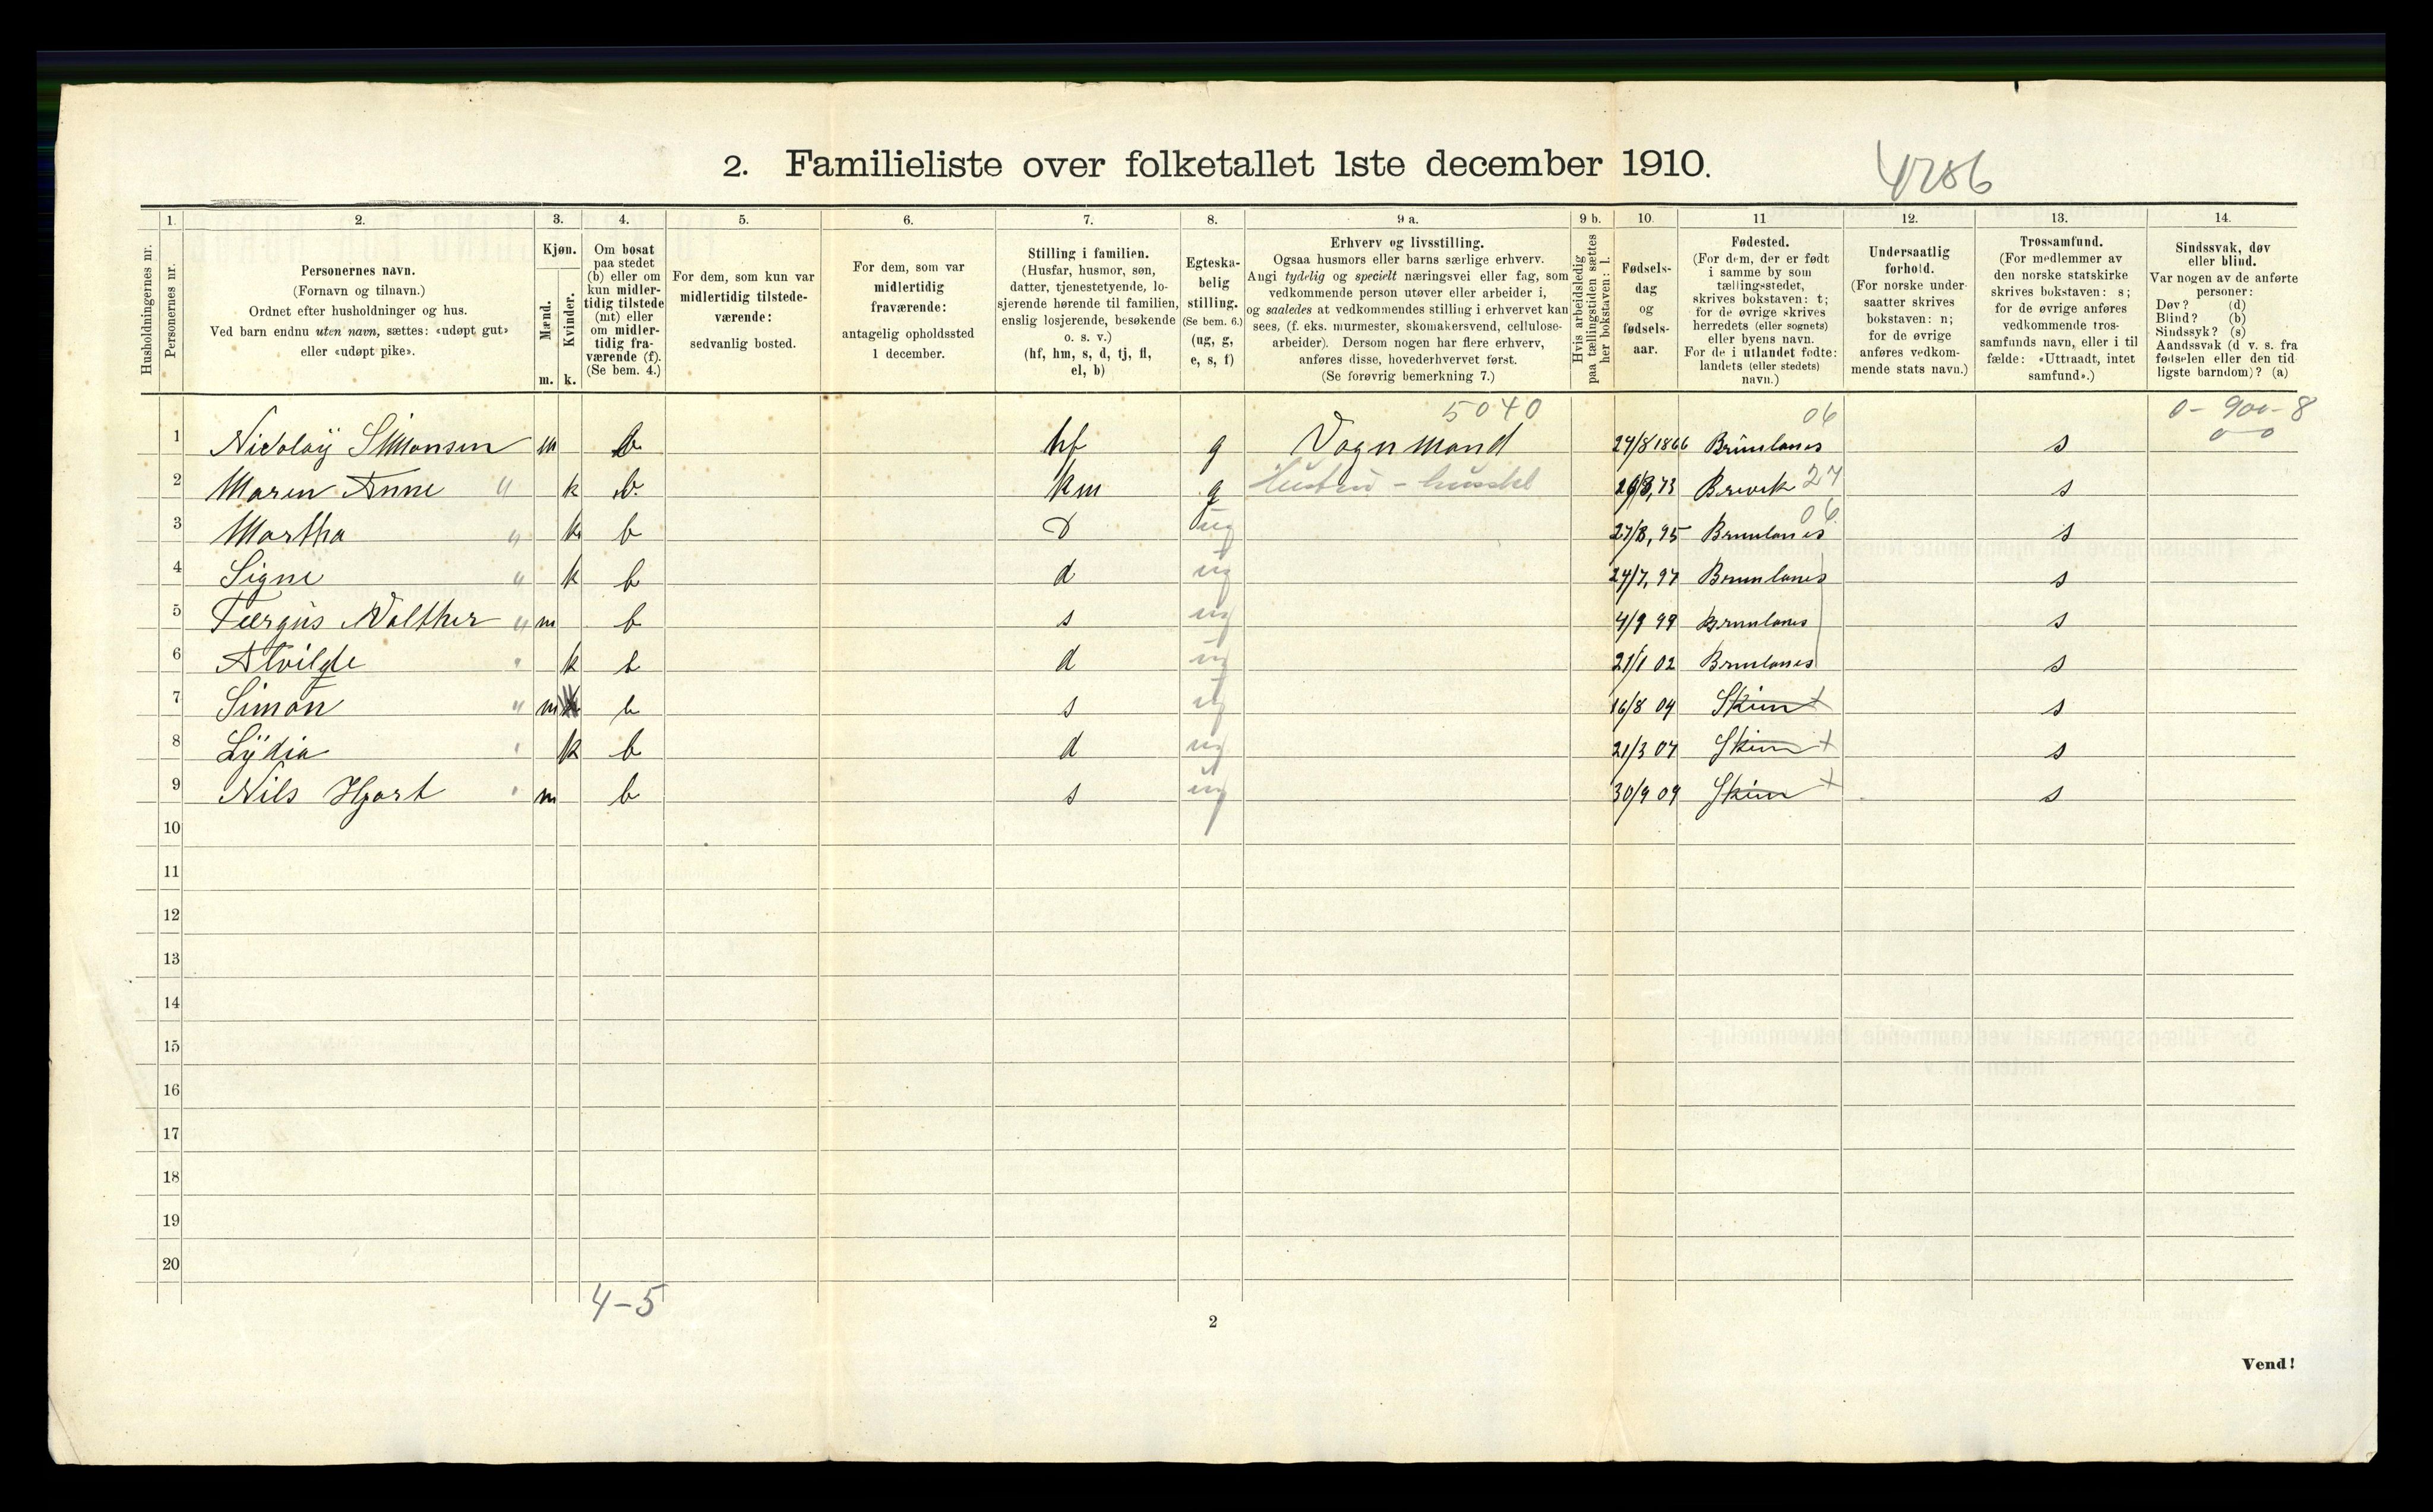 2. Familieliste over folketallet 1ste december 1910.
4286
Husholdningernes nr.
1.
Personernes nr.
2.
Personernes navn.
(Fornavn og tilnavn.)
Ordnet efter husholdninger og hus.
Ved barn endnu uten navn, sættes: «udøpt gut»
eller «udøpt pike».
3.
Kjøn.
Mænd.
m.
Kvinder.
k.
4.
Om bosat
paa stedet
(b) eller om
kun midler-
tidig tilstede
(mt) eller
om midler-
tidig fra-
værende (f).
(Se bem. 4.)
5.
For dem, som kun var
midlertidig tilstede-
værende:
sedvanlig bosted.
6.
For dem, som var
midlertidig
fraværende:
antagelig opholdssted
1 december.
7.
Stilling i familien.
(Husfar, husmor, søn,
datter, tjenestetyende, lo-
sjerende hørende til familien,
enslig losjerende, besøkende
o. s. v.)
(hf, hm, s, d, tj, fl,
el, b)
8.
Egteska-
belig
stilling.
(Se bem. 6.)
(ug, g,
e, s, f)
9 a.
Erhverv og livsstilling.
Ogsaa husmors eller barns særlige erhverv.
Angi tydelig og specielt næringsvei eller fag, som
vedkommende person utøver eller arbeider i,
og saaledes at vedkommendes stilling i erhvervet kan
sees, (f. eks. murmester, skomakersvend, cellulose-
arbeider). Dersom nogen har flere erhverv,
anføres disse, hovederhvervet først.
(Se forøvrig bemerkning 7.)
9 b.
Hvis arbeidsledig
paa tællingstiden sættes
her bokstaven: l.
10.
Fødsels-
dag
og
fødsels-
aar.
11
Fødested.
(For dem, der er født
i samme by som
tællingsstedet,
skrives bokstaven: t;
for de øvrige skrives
herredets (eller sognets)
eller byens navn.
For de i utlandet fødte:
landets (eller stedets)
navn.)
12.
Undersaatlig
forhold.
(For norske under-
saatter skrives
bokstaven: n;
for de øvrige
anføres vedkom-
mende stats navn.)
13.
Trossamfund.
(For medlemmer av
den norske statskirke
skrives bokstaven: s;
for de øvrige anføres
vedkommende tros-
samfunds navn, eller i til
fælde: «Uttraadt, intet
samfund».)
14.
Sindssvak, døv
eller blind.
Var nogen av de anførte
personer:
Døv? (d)
Blind? (b)
Sindssyk? (s)
Aandssvak (d v. s. fra
fødselen eller den tid
ligste barndom)? (a)
5040 06 0-900-8
1 Nicolaÿ Simonsen m b hf g Vognmand 24/8 1866 Brunlanes s 0-0
2 Maren Anne " k b. hm g Hustru - husstel 26/8, 73 Brevik 27 s
06
3 Martha " k b D ug 27/8, 95 Brunlanes s
4 Signe " k b d ug 24/7, 97 Brunlanes s
5 Færgus Walther " m b s ug 4/9 99 Brunlanes s
6 Alvilde " k b d ug 21/1 02 Brunlanes s
7 Simon " m b s ug 16/8 04 Skien t s
8 Lÿdia " k b d ug 21/3 07 Skien t s
9 Nils Hjort " m b s ug 30/9 09 Skien t s
10
11
12
13
14
15
16
17
18
19
20
4-5
2
Vend!